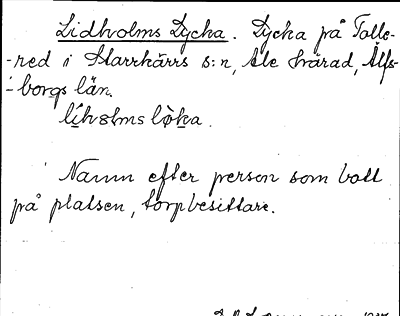 Lidholms Lycka. Lycka på Tolle-
-red i Starrkärrs s:n, Ale härad, Älfs-
-borgs län.
Namn efter person som bott
på platsen, torpbesittare.